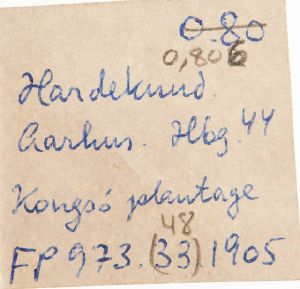 0.80
0,806
Hardeknud.
Aarhus. Hbg. 44
Kongsö plantage
48
FP 973. (33). 1905